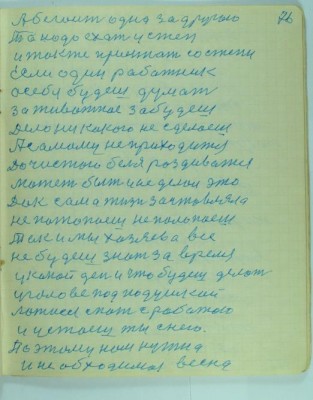 76
Абегоит одна за другою
То надо ехат и степ
и также приехат со степи
Если один работник
о себя будеш думат
За животное забудеш
Дело ни какого не сделаеш
А самому не приходится
До чистого беля роздиватся
может быт и не делал это
Дак сама жизн заставляла
не потопаеш не полопаеш
Так и мы хазяева все
не будеш знат за время
и какой ден и что будеш делат
и голове под подушкой
ложися спат с работою
и истаеш ты с нею.
Поэтому нам нужна
и не обходимая весна